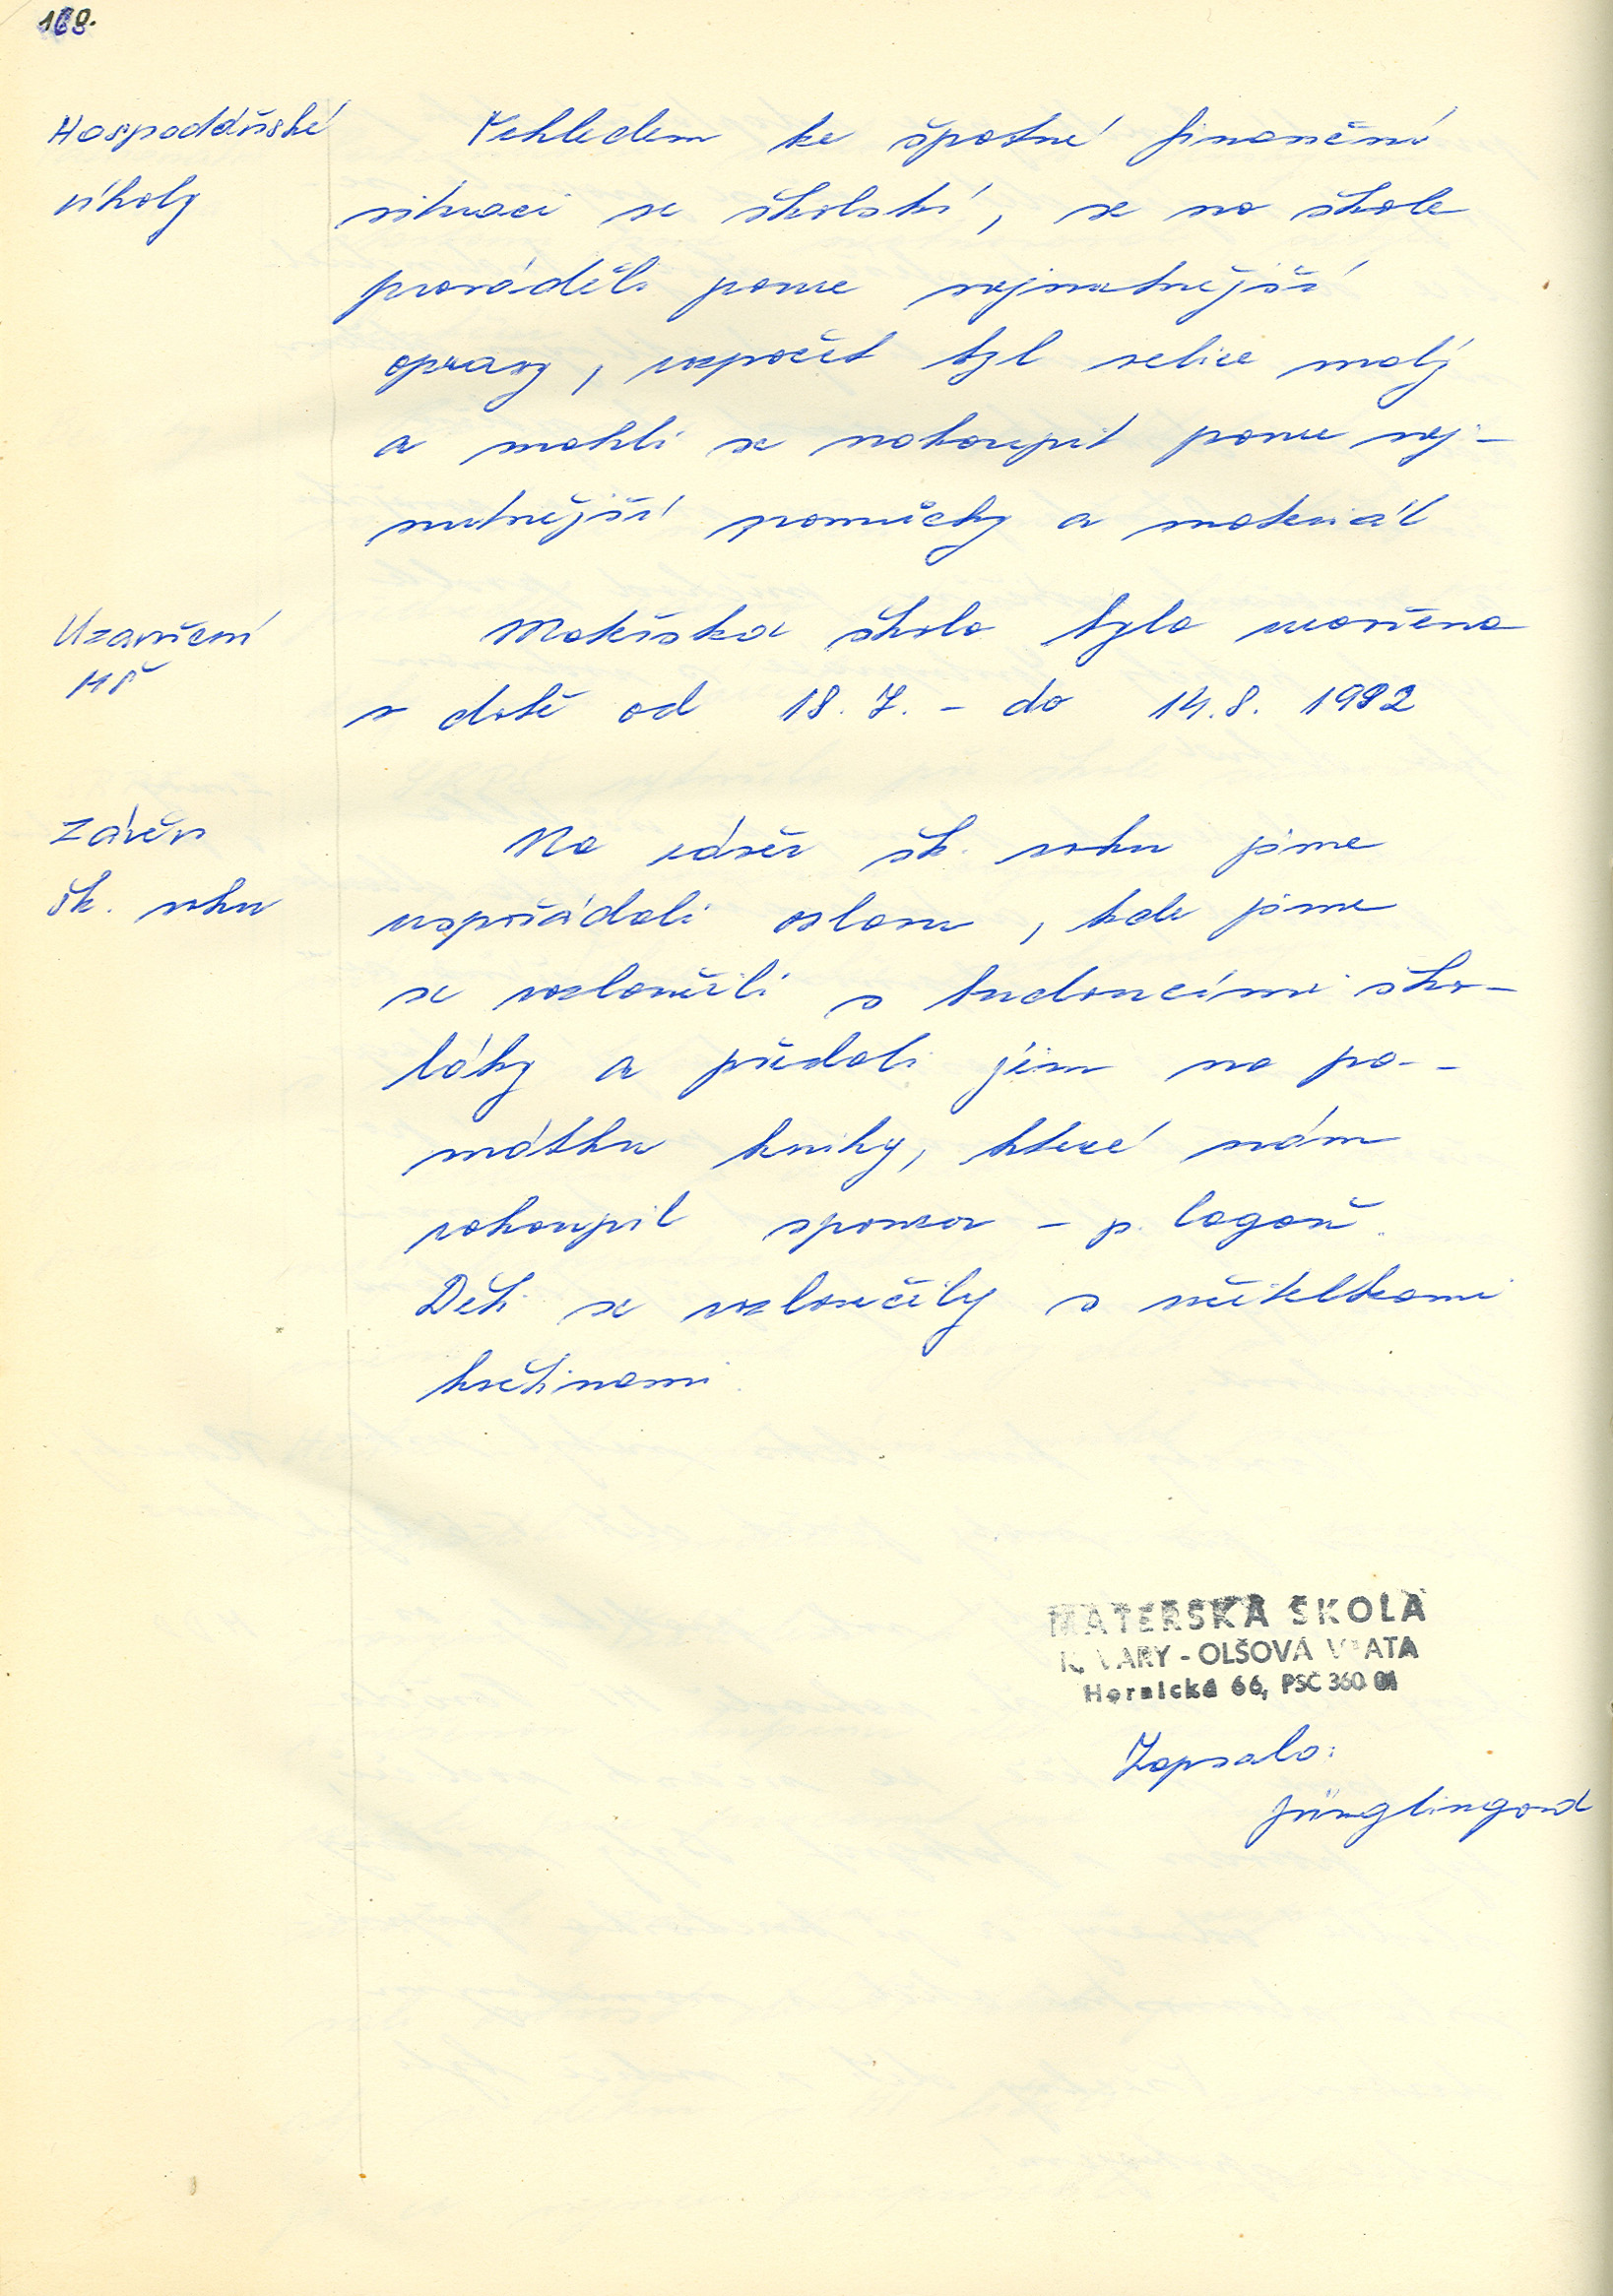 168.
Hospodářské
úkoly
Vzhledem ke špatné finanční
situaci ve školství, se na škole
prováděli pouze nejnutnější
opravy, rozpočet byl velice malý
a mohli se nakoupit pouze nej-
nutnější pomůcky a materiál
Uzavření
MŠ
Mateřská škola byla uzavřena
v době od 18. 7. - do 14. 8. 1992
Závěr
šk. roku
Na závěr šk. roku jsme
uspořádali oslavu, kde jsme
se rozloučili s budoucími ško-
láky a předali jim na pa-
mátku knihy, které nám
zakoupil sponzor - p. Logaň.
Děti se rozloučily s učitelkami
květinami.
MATEŘSKÁ ŠKOLA
K. VARY - OLŠOVÁ VRATA
Hornická 66, PSČ 360 01
Zapsala:
Jünglingová